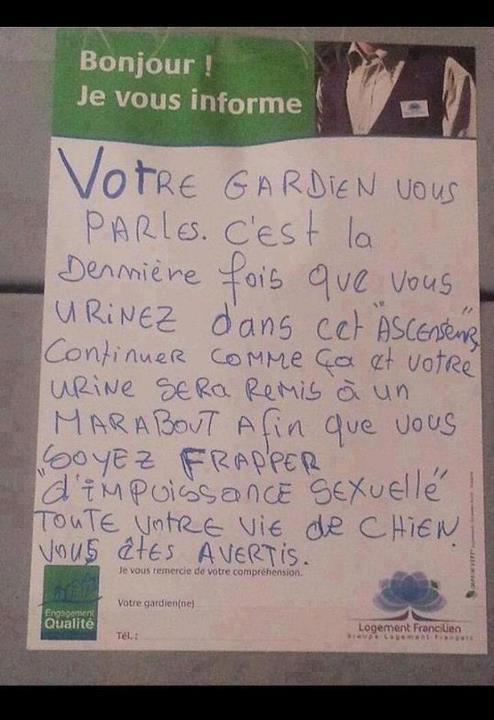 Bonjour !
Je vous informe
VOTRE GARDIEN VOUS
PARLES. C'EST la
Dernnière fois que vous
URINEZ dans cet "ASCENSEUR"
Continuer COMME ça et votre
URINE SERA REMIS à un
MARABOUT Afin que vous
"SOYEZ FRAPPER
d'IMPUISSANCE SEXUELLE"
TOUTE VOTRE VIE de CHIEN.
VOUS êtES AVERTIS.
Je vous remercie de votre compréhension.
Votre gardien(ne)
Engagement
Qualité
Tél. :
Logement Francilien
Groupe Logement Français